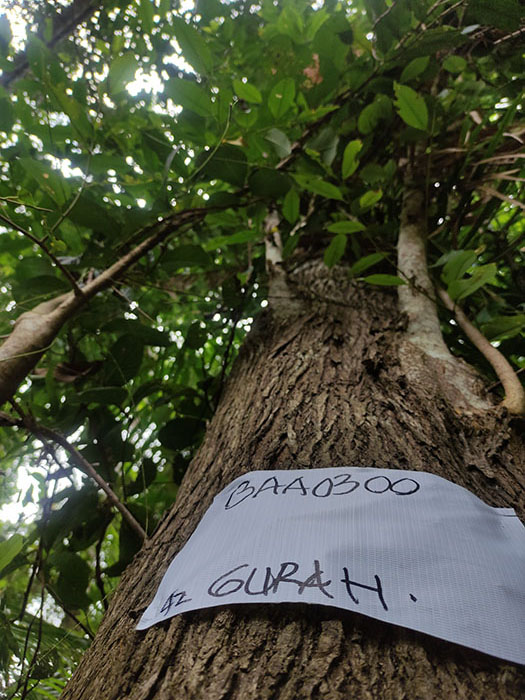 BAA0300
42 GURAH.